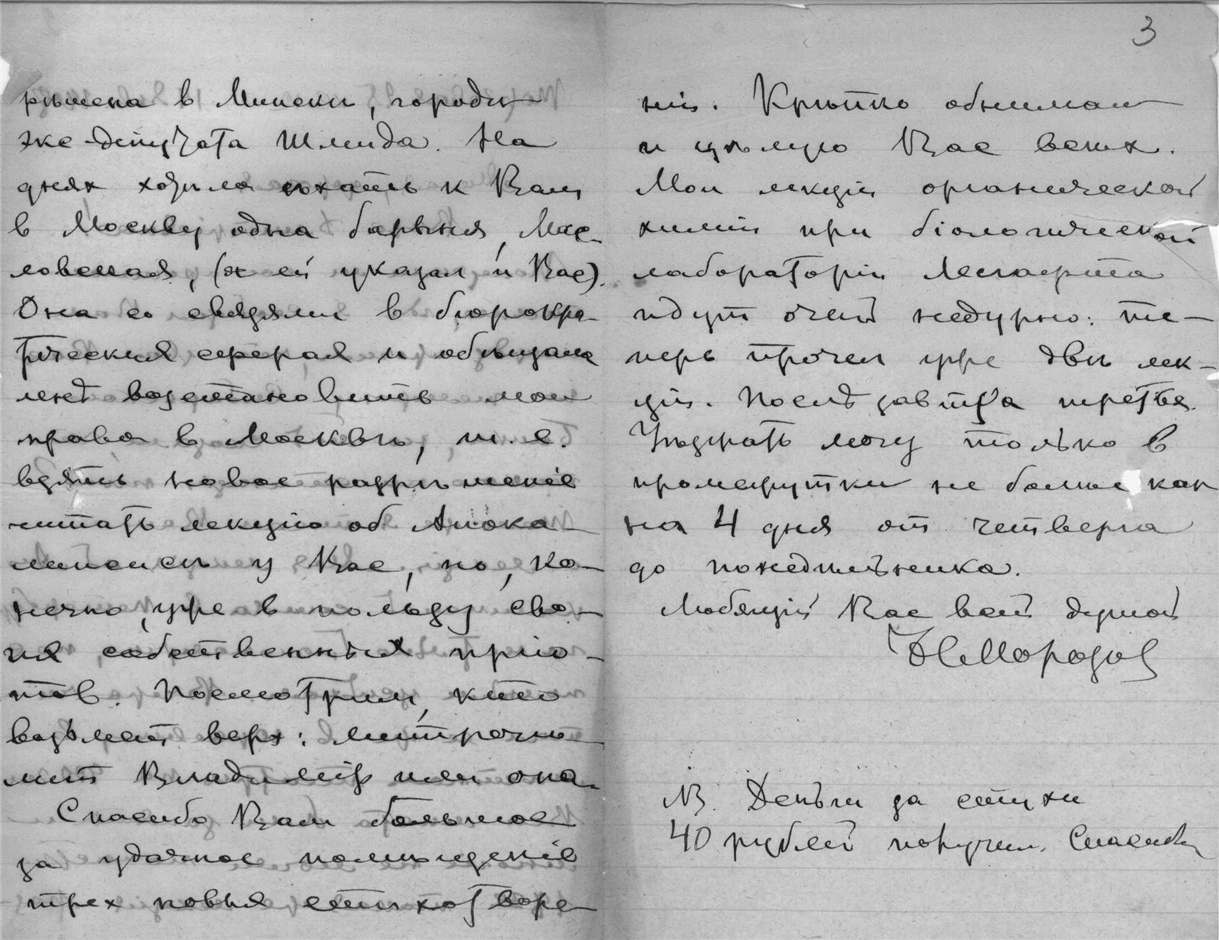 рѣшена в Минскѣ, городѣ
экс-депутата Шмида. На
днях ходила ѣхать к Вам
в Москву одна барыня, Мас-
ловская, (я ей указал и Вас).
Она со связями в бюрокра-
тических сферах и обѣщала
мнѣ возстановить мои
права в Москвѣ, т. е.
взять новое разрѣшеніе
читать лекцію об Апока-
липсисѣ у Вас, но, ко-
нечно, уже в пользу сво-
их собственных прію-
тов. Посмотрим, кто
возьмет верх: митропо-
лит Владимір или она.
Спасибо Вам большое
за удачное помѣщеніе
трех новых стихотворе-
3
ній. Крѣпко обнимаю
и цѣлую Вас всѣх.
Мои лекціи органической
химіи при біологической
лабораторіи Лесгафта
идут очень недурно: те-
перь прочел уже двѣ лек-
ціи. Послѣ завтра третья.
Уѣзжать могу только в
промежутки не больше как
на 4 дня от четверга
до понедѣльника.
Любящій Вас всей душой
Н Морозов
NB. Деньги за стихи
40 рублей получил. Спасибо